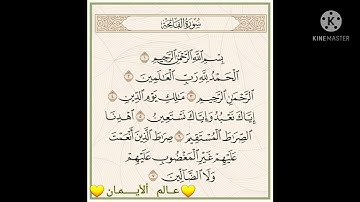 سُورَةُ الفَاتِحَةِ
بِسْمِ ٱللَّهِ ٱلرَّحْمَٰنِ ٱلرَّحِيمِ ١
ٱلْحَمْدُ لِلَّهِ رَبِّ ٱلْعَٰلَمِينَ ٢
ٱلرَّحْمَٰنِ ٱلرَّحِيمِ ٣ مَٰلِكِ يَوْمِ ٱلدِّينِ ٤
إِيَّاكَ نَعْبُدُ وَإِيَّاكَ نَسْتَعِينُ ٥ ٱهْدِنَا
ٱلصِّرَٰطَ ٱلْمُسْتَقِيمَ ٦ صِرَٰطَ ٱلَّذِينَ أَنْعَمْتَ
عَلَيْهِمْ غَيْرِ ٱلْمَغْضُوبِ عَلَيْهِمْ
وَلَا ٱلضَّآلِّينَ ٧
عـالم الأيـمـان
K
KINEMASTER